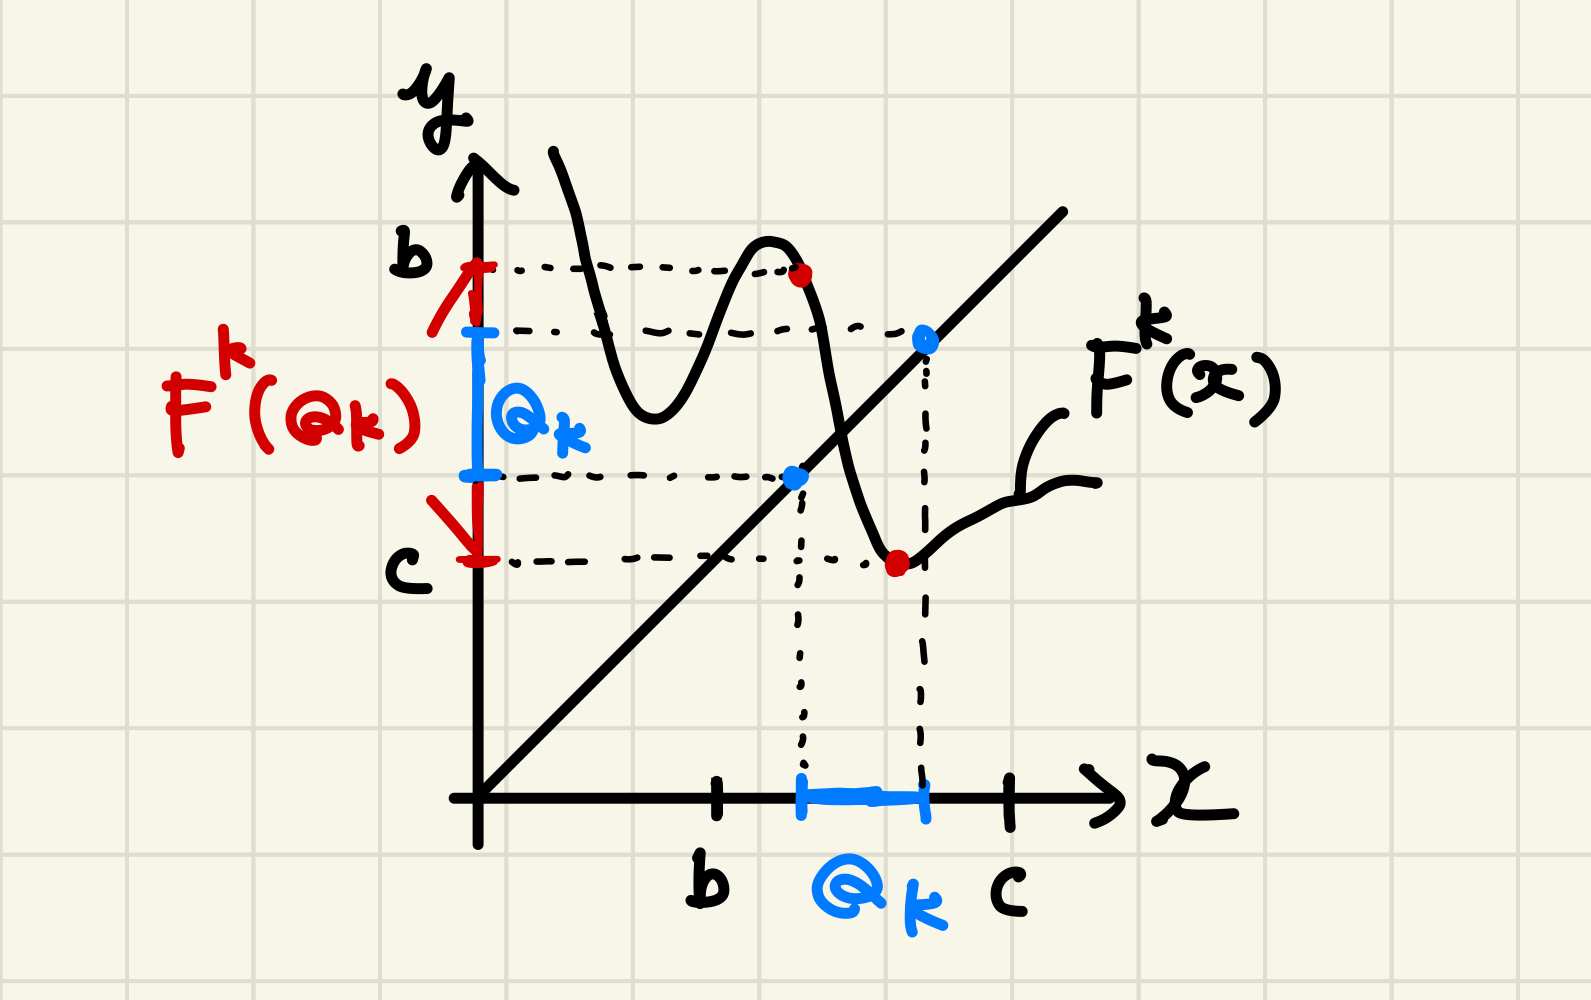 y
b
F^k(Q_k)
Q_k
F^k(x)
c
x
b
Q_k
c